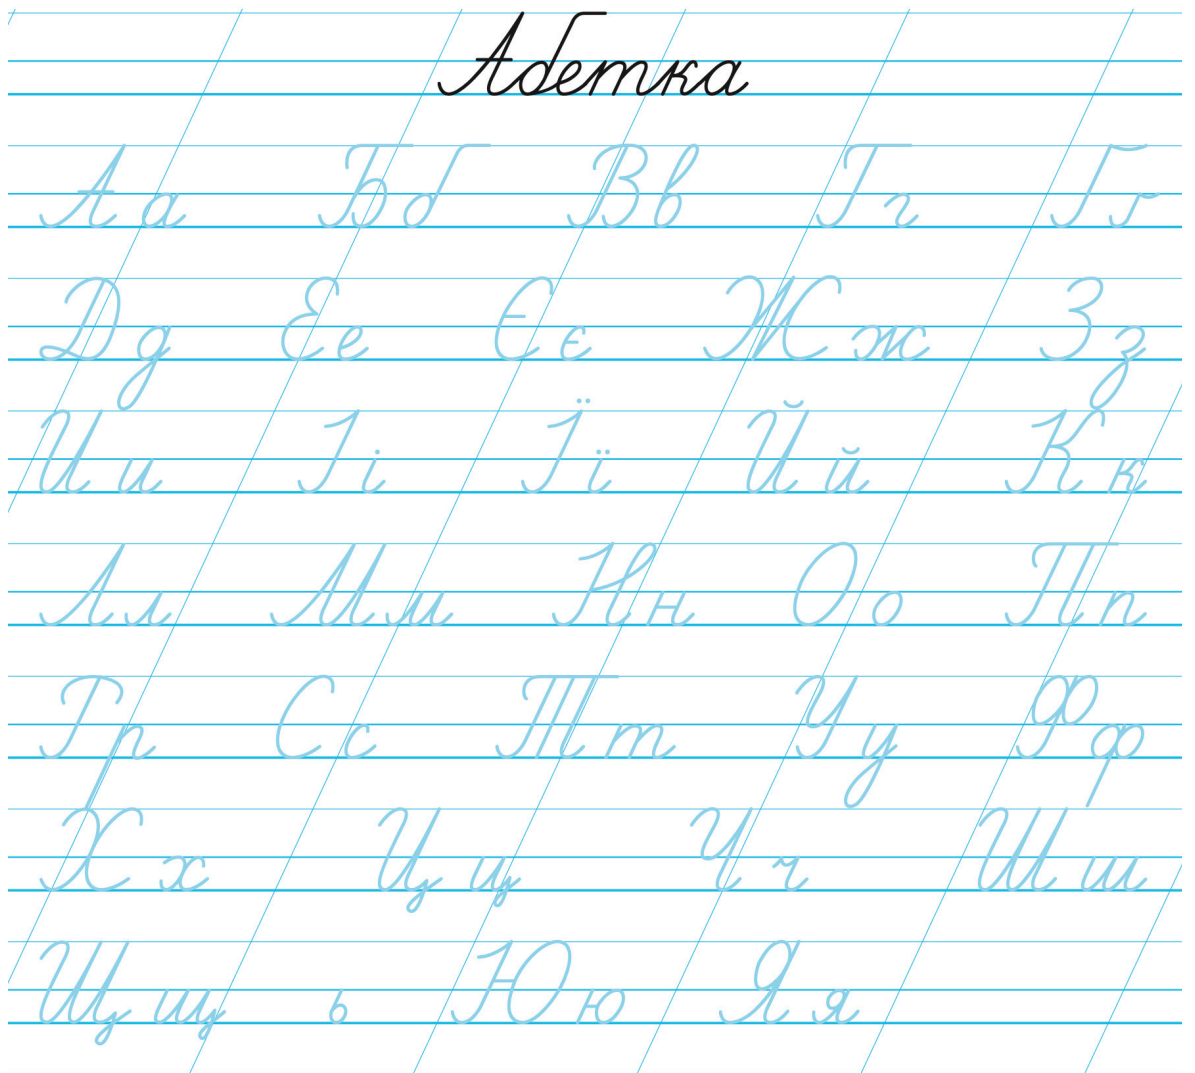 Абетка
Аа Бб Вв Гг Ґґ
Дд Ее Єє Жж Зз
Ии Іі Її Йй Кк
Лл Мм Нн Оо Пп
Рр Сс Тт Уу Фф
Хх Цц Чч Шш
Щщ ь Юю Яя